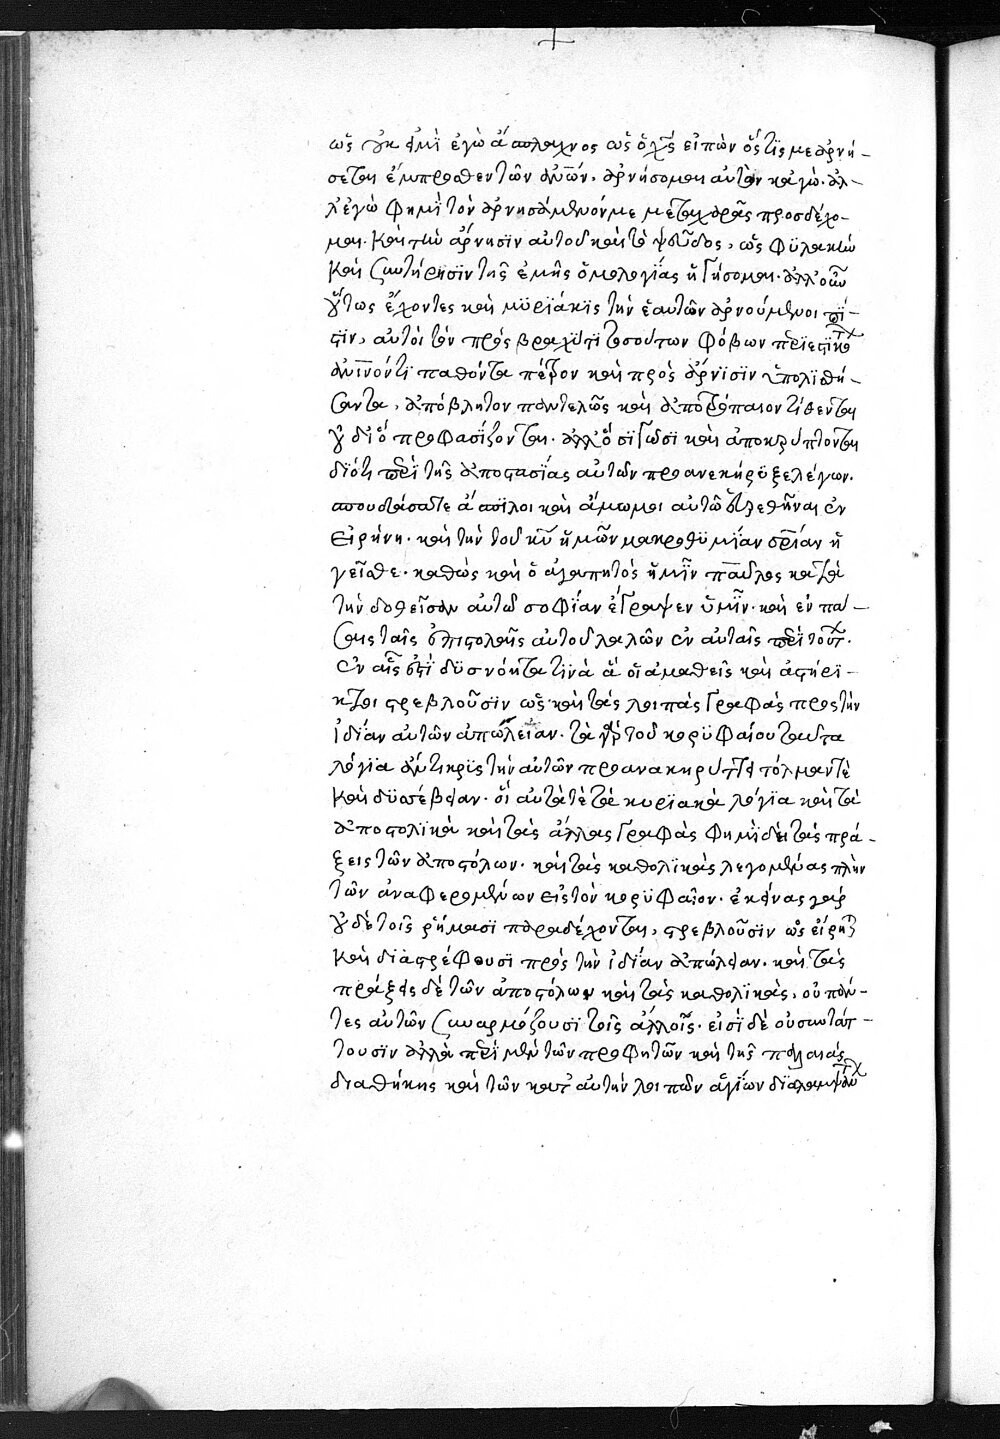 ὡς οὐκ εἰμὶ ἐγὼ ἄσπλαγχνος ὡς ὁ χς εἰπὼν ὅστις με ἀρνή-
σεται ἔμπροσθεν τῶν ἀνων, ἀρνήσομαι αὐτὸν καγώ. ἀλ-
λ' ἐγὼ φημὶ τὸν ἀρνησάμενόν με μετὰ χαρᾶς προσδέχο-
μαι. καὶ τὴν ἄρνησϊν αὐτοῦ καὶ τὸ ψεῦδος, ὡς φϋλακὴν
καὶ συντήρησϊν τῆς ἐμῆς ὁμολογίας ἡγήσομαι. ἀλλ' οὖν
οὕτως ἔχοντες καὶ μϋριάκϊς τὴν ἑαυτῶν ἀρνούμενοι πί-
στϊν, αὐτοὶ τὸν πρὸς βραχύ τι τοσούτων φόβων περιεστηκότων
ἀνινόν τϊ παθόντα πέτρον καὶ πρὸς ἄρνϊσϊν ὑπολϊσθή-
σαντα, ἀπόβλητον παντελῶς καὶ ἀποτρόπαιον τίθενται
οὐ δι' ὃ προφασίζονται. ἀλλ' ὃ σϊγῶσϊ καὶ ἀποκρύπτονται
δϊότι περὶ τῆς ἀποστασίας αὐτῶν προανεκήρϋξε λέγων.
σπουδάσατε ἄσπϊλοι καὶ ἄμωμοι αὐτῷ εὑρεθῆναι ἐν
εἰρήνη. καὶ τὴν τοῦ κυ ἡμῶν μακροθϋμίαν σρίαν ἡ
γεῖσθε. καθὼς καὶ ὁ ἀγαπητὸς ἡμῖν παῦλος κατὰ
τὴν δοθεῖσαν αὐτῷ σοφίαν ἔγραψεν ὑμῖν. καὶ ἐν πά-
σαις ταῖς ἐπιστολαῖς αὐτοῦ λαλῶν ἐν αὐταῖς περὶ τούτων.
ἐν αἷς ἐστὶ δϋσνόητα τϊνὰ ἃ οἱ ἀμαθεῖς καὶ ἀστήρι-
κτοι στρεβλοῦσϊν ὡς καὶ τὰς λοιπὰς γραφὰς πρὸς τὴν
ἰδίαν αὐτῶν ἀπώλειαν. τὰ γὰρ τοῦ κορϋφαίου ταῦτα
λόγϊα ἄντικρϊς τὴν αὐτῶν προανακηρύττει τόλμαν τὲ
καὶ δϋσσέβειαν. οἱ αὐτὰ τὲ τὰ κυρϊακὰ λόγϊα καὶ τὰ
ἀποστολϊκὰ καὶ τὰς ἄλλας γραφὰς φημὶ δὲ τὰς πρά-
ξεις τῶν ἀποστόλων. καὶ τὰς καθολϊκὰς λεγομένας πλὴν
τῶν ἀναφερομένων εἰς τὸν κορϋφαῖον. ἐκείνας γὰρ
οὐδὲ τοῖς ῥήμασϊ παραδέχονται, στρεβλοῦσϊν ὡς εἴρηται
καὶ διαστρέφουσϊ πρὸς τὴν ἰδίαν ἀπώλειαν. καὶ τὰς
πράξεις δὲ τῶν ἀποστόλων καὶ τὰς καθολϊκὰς, οὐ πάν-
τες αὐτῶν συναρμόζουσϊ τοῖς ἄλλοις. εἰσϊ δὲ οἳ συντάτ-
τουσϊν ἀλλὰ περὶ μὲν τῶν προφητῶν καὶ τῆς παλαιᾶς
διαθήκης καὶ τῶν κατ' αὐτὴν λοιπῶν ἁγίων διαλαμψάντων